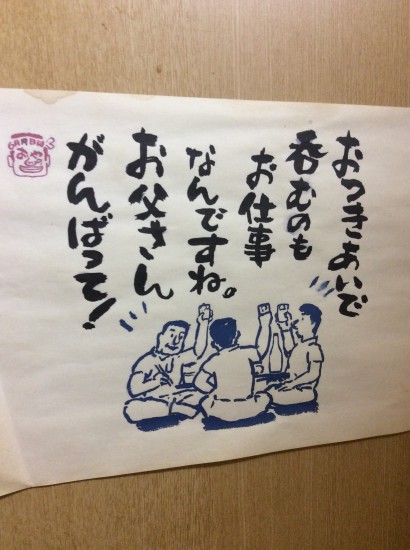 おつきあいで
呑むのも
お仕事
なんですね。
お父さん
がんばって!